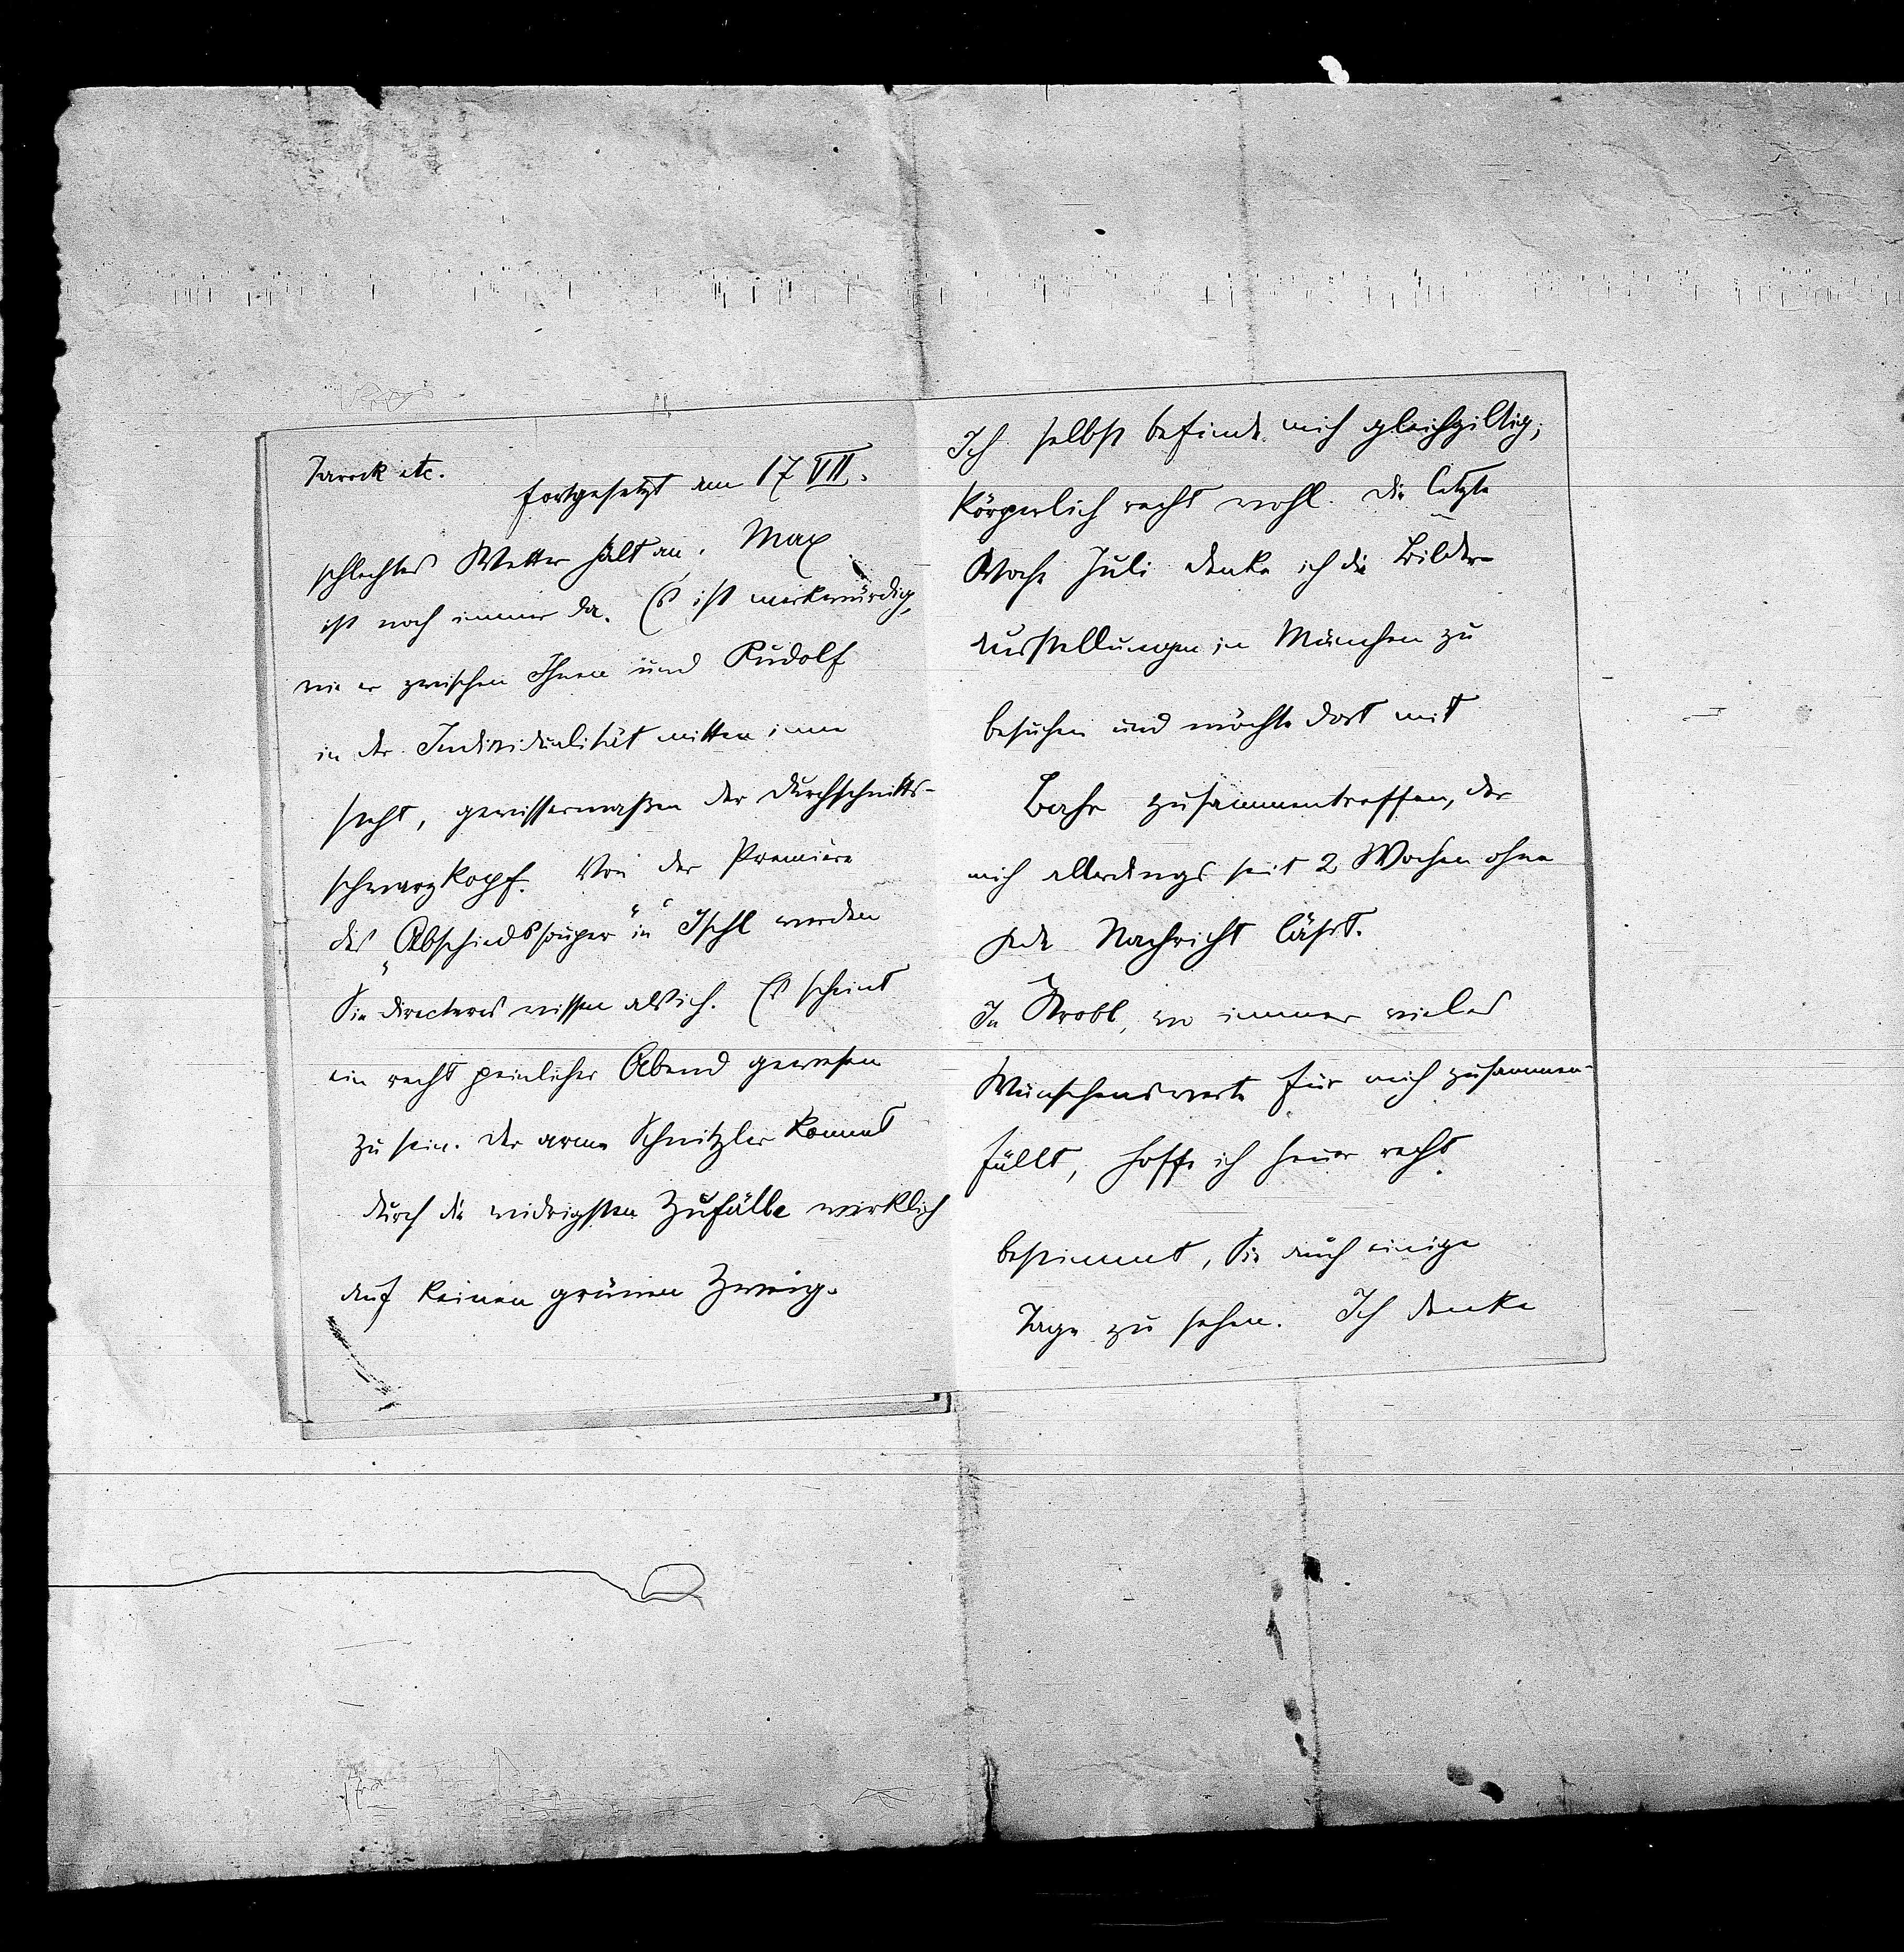 Tarock etc.
fortgesetzt am 17 VII.
schlechtes Wetter hält an. Max
ist noch immer da. Es ist merkwürdig,
wie er zwischen Ihnen und Rudolf
in der Individualität mitten inne
steht, gewissermaßen der Durchschnitts-
schwarzkopf. Von der Première
des „Abschiedssouper“ in Ischl werden
Sie directeres wissen als ich. Es scheint
ein recht peinlicher Abend gewesen
zu sein. Der arme Schnitzler kommt
durch die widrigsten Zufälle wirklich
auf keinen grünen Zweig.
Ich selbst befinde mich gleichgiltig;
körperlich recht wohl. Die letzte
Woche Juli denke ich die Bilder
ausstellungen in München zu
besuchen und möchte dort mit
Bahr zusammentreffen, der
mich allerdings seit 2 Wochen ohne
jede Nachricht läßt.
In Strobl, wo immer vieles
Wünschenswerte für mich zusammen-
fällt, hoffe ich heuer recht
bestimmt, Sie auch einige
Tage zu sehen. Ich denke